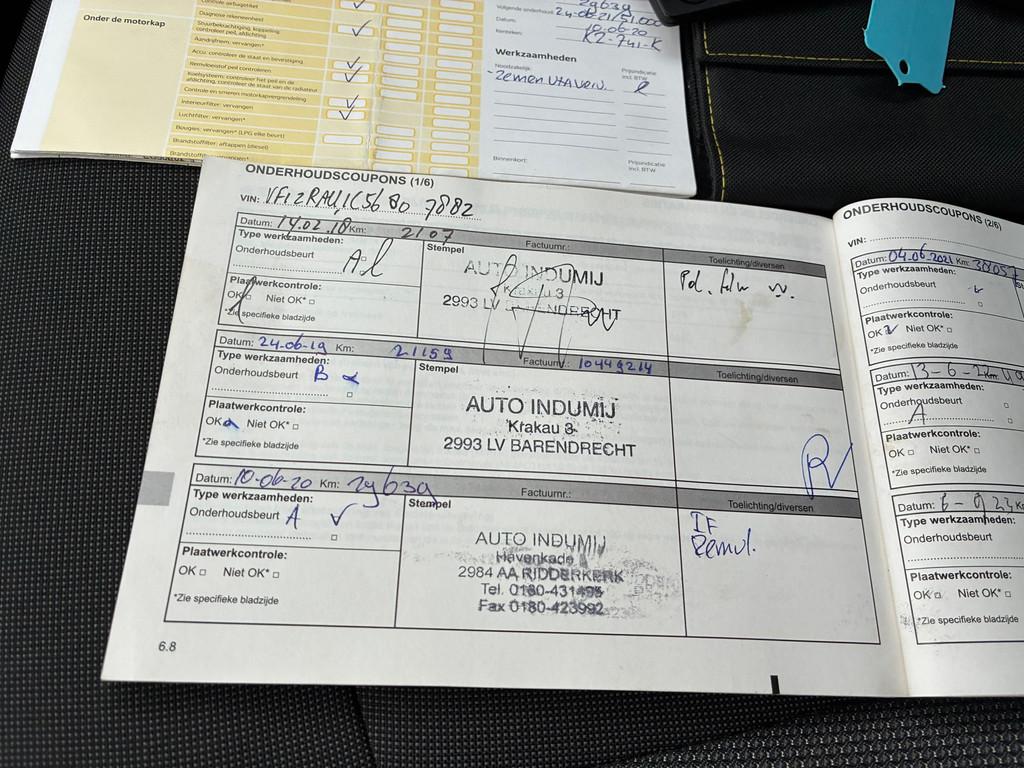 Controle airbagetiket
Diagnose rekeneenheid
Onder de motorkap
Stuurbekrachtiging, koppeling:
controleer peil, afdichting
Aandrijfriem: vervangen*
Accu: controleer de staat en bevestiging
Remvloeistof peil controleren
Koelsysteem: controleer het peil en de
afdichting, controleer de staat van de radiateur
Controle en smeren motorkapvergrendeling
Interieurfilter: vervangen
Luchtfilter: vervangen*
Bougies: vervangen* (LPG elke beurt)
Brandstoffilter: aftappen (diesel)
Brandstoffilter: vervangen*
29639
Volgende onderhoud:
24-06-21/51.000
Datum: 10-06-20
Kenteken:
Werkzaamheden
Noodzakelijk:
Prijsindicatie
incl. BTW
Binnenkort:
Prijsindicatie
incl. BTW
ONDERHOUDSCOUPONS (1/6)
VIN:
Datum: 14.02.18 Km: 2107 Factuurnr.:
Type werkzaamheden:
Onderhoudsbeurt
Stempel
Toelichting/diversen
AUTO INDUMIJ
Krakau 3
2993 LV BARENDRECHT
Plaatwerkcontrole:
OK Niet OK*
*Zie specifieke bladzijde
Datum: 24-06-19 Km: 21159 Factuurnr.: 10449214
Type werkzaamheden:
Onderhoudsbeurt B
Stempel
Toelichting/diversen
AUTO INDUMIJ
Krakau 3
2993 LV BARENDRECHT
Plaatwerkcontrole:
OK Niet OK*
*Zie specifieke bladzijde
Datum: 10-06-20 Km: 29639 Factuurnr.:
Type werkzaamheden:
Onderhoudsbeurt A
Stempel
Toelichting/diversen
AUTO INDUMIJ
Havenkade
2984 AA RIDDERKERK
Tel. 0180-431495
Fax 0180-423992
IF
Remvl.
Plaatwerkcontrole:
OK Niet OK*
*Zie specifieke bladzijde
6.8
ONDERHOUDSCOUPONS (2/6)
VIN:
Datum: 04-06-2021 Km: 38057
Type werkzaamheden:
Onderhoudsbeurt
Plaatwerkcontrole:
OK Niet OK*
*Zie specifieke bladzijde
Datum: Km:
Type werkzaamheden:
Onderhoudsbeurt
A
Plaatwerkcontrole:
OK Niet OK*
*Zie specifieke bladzijde
Datum:
Type werkzaamheden:
Onderhoudsbeurt
Plaatwerkcontrole:
OK Niet OK*
*Zie specifieke bladzijde